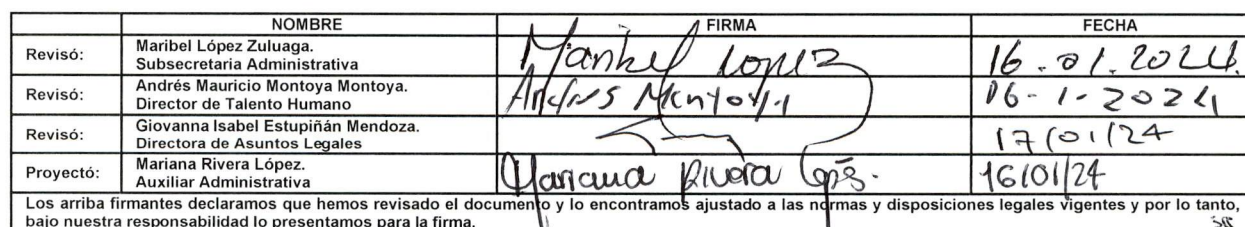 NOMBRE FIRMA FECHA
Revisó: Maribel López Zuluaga.
Subsecretaria Administrativa Maribel Lopez 16.01.2024.
Revisó: Andrés Mauricio Montoya Montoya.
Director de Talento Humano Andrés Montoya 16-1-2024
Revisó: Giovanna Isabel Estupiñán Mendoza.
Directora de Asuntos Legales 17/01/24
Proyectó: Mariana Rivera López.
Auxiliar Administrativa Mariana Rivera 16/01/24
Los arriba firmantes declaramos que hemos revisado el documento y lo encontramos ajustado a las normas y disposiciones legales vigentes y por lo tanto,
bajo nuestra responsabilidad lo presentamos para la firma.